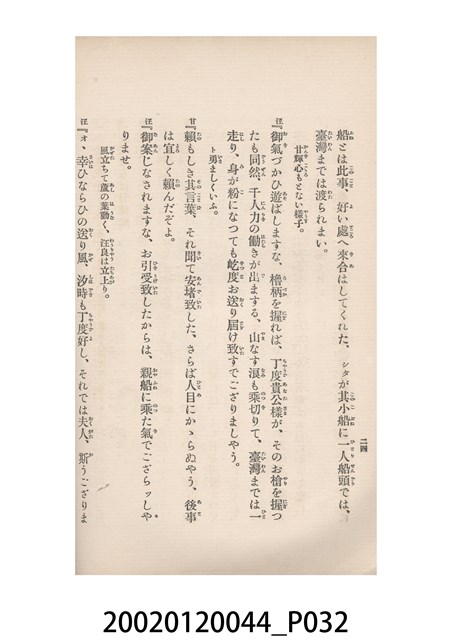 二四
船とは此事、好い處へ來合はしてくれた、シタが其小船に一人船頭では、
臺灣までは渡られまい。
甘輝心もとない樣子。
汪『御氣づかひ遊ばしますな、櫓柄を握れば、丁度貴公樣が、そのお槍を握つ
たも同然、千人力の働きが出まする、山なす浪も乘切りて、臺灣までは一
走り、身が粉になつても屹度お送り屆け致すでござりましやう。
ト勇ましくいふ。
甘『賴もしき其言葉、それ聞て安堵致した、さらば人目にかゝらぬやう、後事
は宜しく賴んだぞよ。
汪『御案じなされますな、お引受致したからは、親船に乘た氣でござらッしや
りませ。
風立ちて蘆の葉動く、汪良は立上り。
汪『オ、幸ひならひの送り風、汐時も丁度好し、それでは夫人、斯うござりま
20020120044_P032